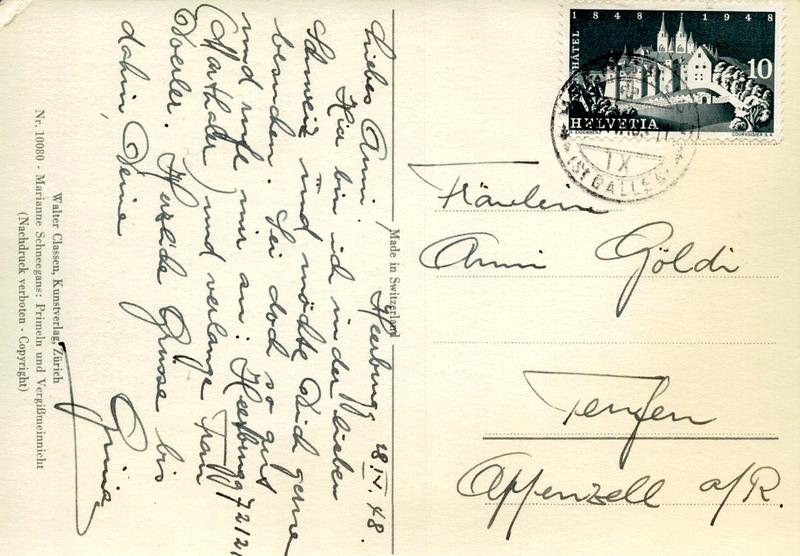 Heerbrugg 28.IV.48.
Liebes Anni!
Hier bin ich in der lieben
Schweiz und möchte Dich gerne
besuchen. Sei doch so gut
und rufe mir an: Heerbrugg 72121
(Marthaler) und verlange Frau
Doerler. Herzliche Grüsse bis
dahin, Deine
Made in Switzerland
Walter Classen, Kunstverlag, Zürich
Nr. 10080 - Marianne Schneegans: Primeln und Vergißmeinnicht
(Nachdruck verboten - Copyright)
1848 1948
NEUCHÂTEL
10
HELVETIA
COURVOISIER S.A.
IX
(St GALLEN)
Fräulein
Anni Göldi
Teufen
Appenzell a/R.